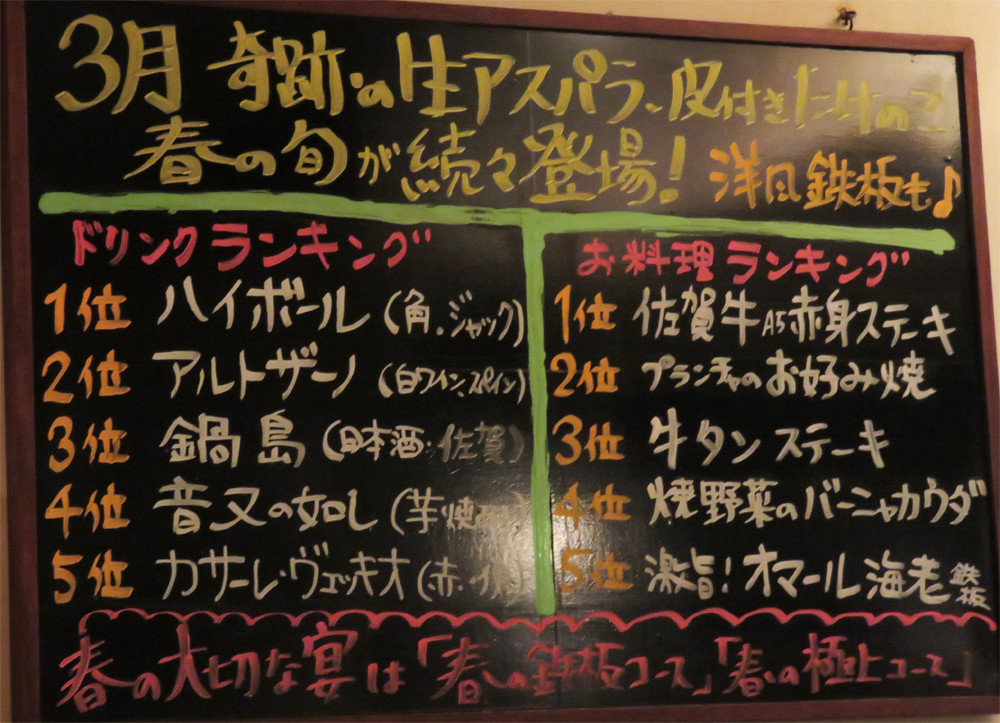 3月 奇跡の生アスパラ、皮付きたけのこ
春の旬が続々登場! 洋風鉄板も♪
ドリンクランキング
1位 ハイボール (角.ジャック)
2位 アルトザーノ (白ワイン、スペイン)
3位 鍋島 (日本酒・佐賀)
4位 音又の如し (芋焼
5位 カサーレ・ヴェッキオ (赤・伊)
お料理ランキング
1位 佐賀牛A5赤身ステーキ
2位 プランチャのお好み焼
3位 牛タンステーキ
4位 焼野菜のバーニャカウダ
5位 激旨! オマール海老 鉄板
春の大切な宴は「春の鉄板コース」「春の極上コース」